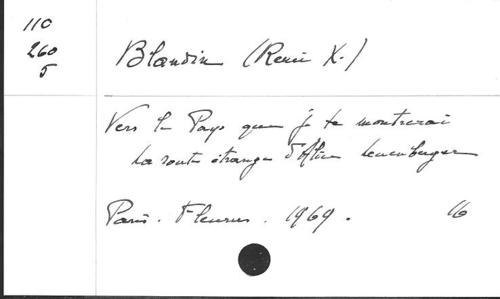 110
260
5
Blandin (René X.)
Vers le Pays que je te montrerai
La route étrange d'Alice Leuenberger
Paris. Fleurus. 1969.
16